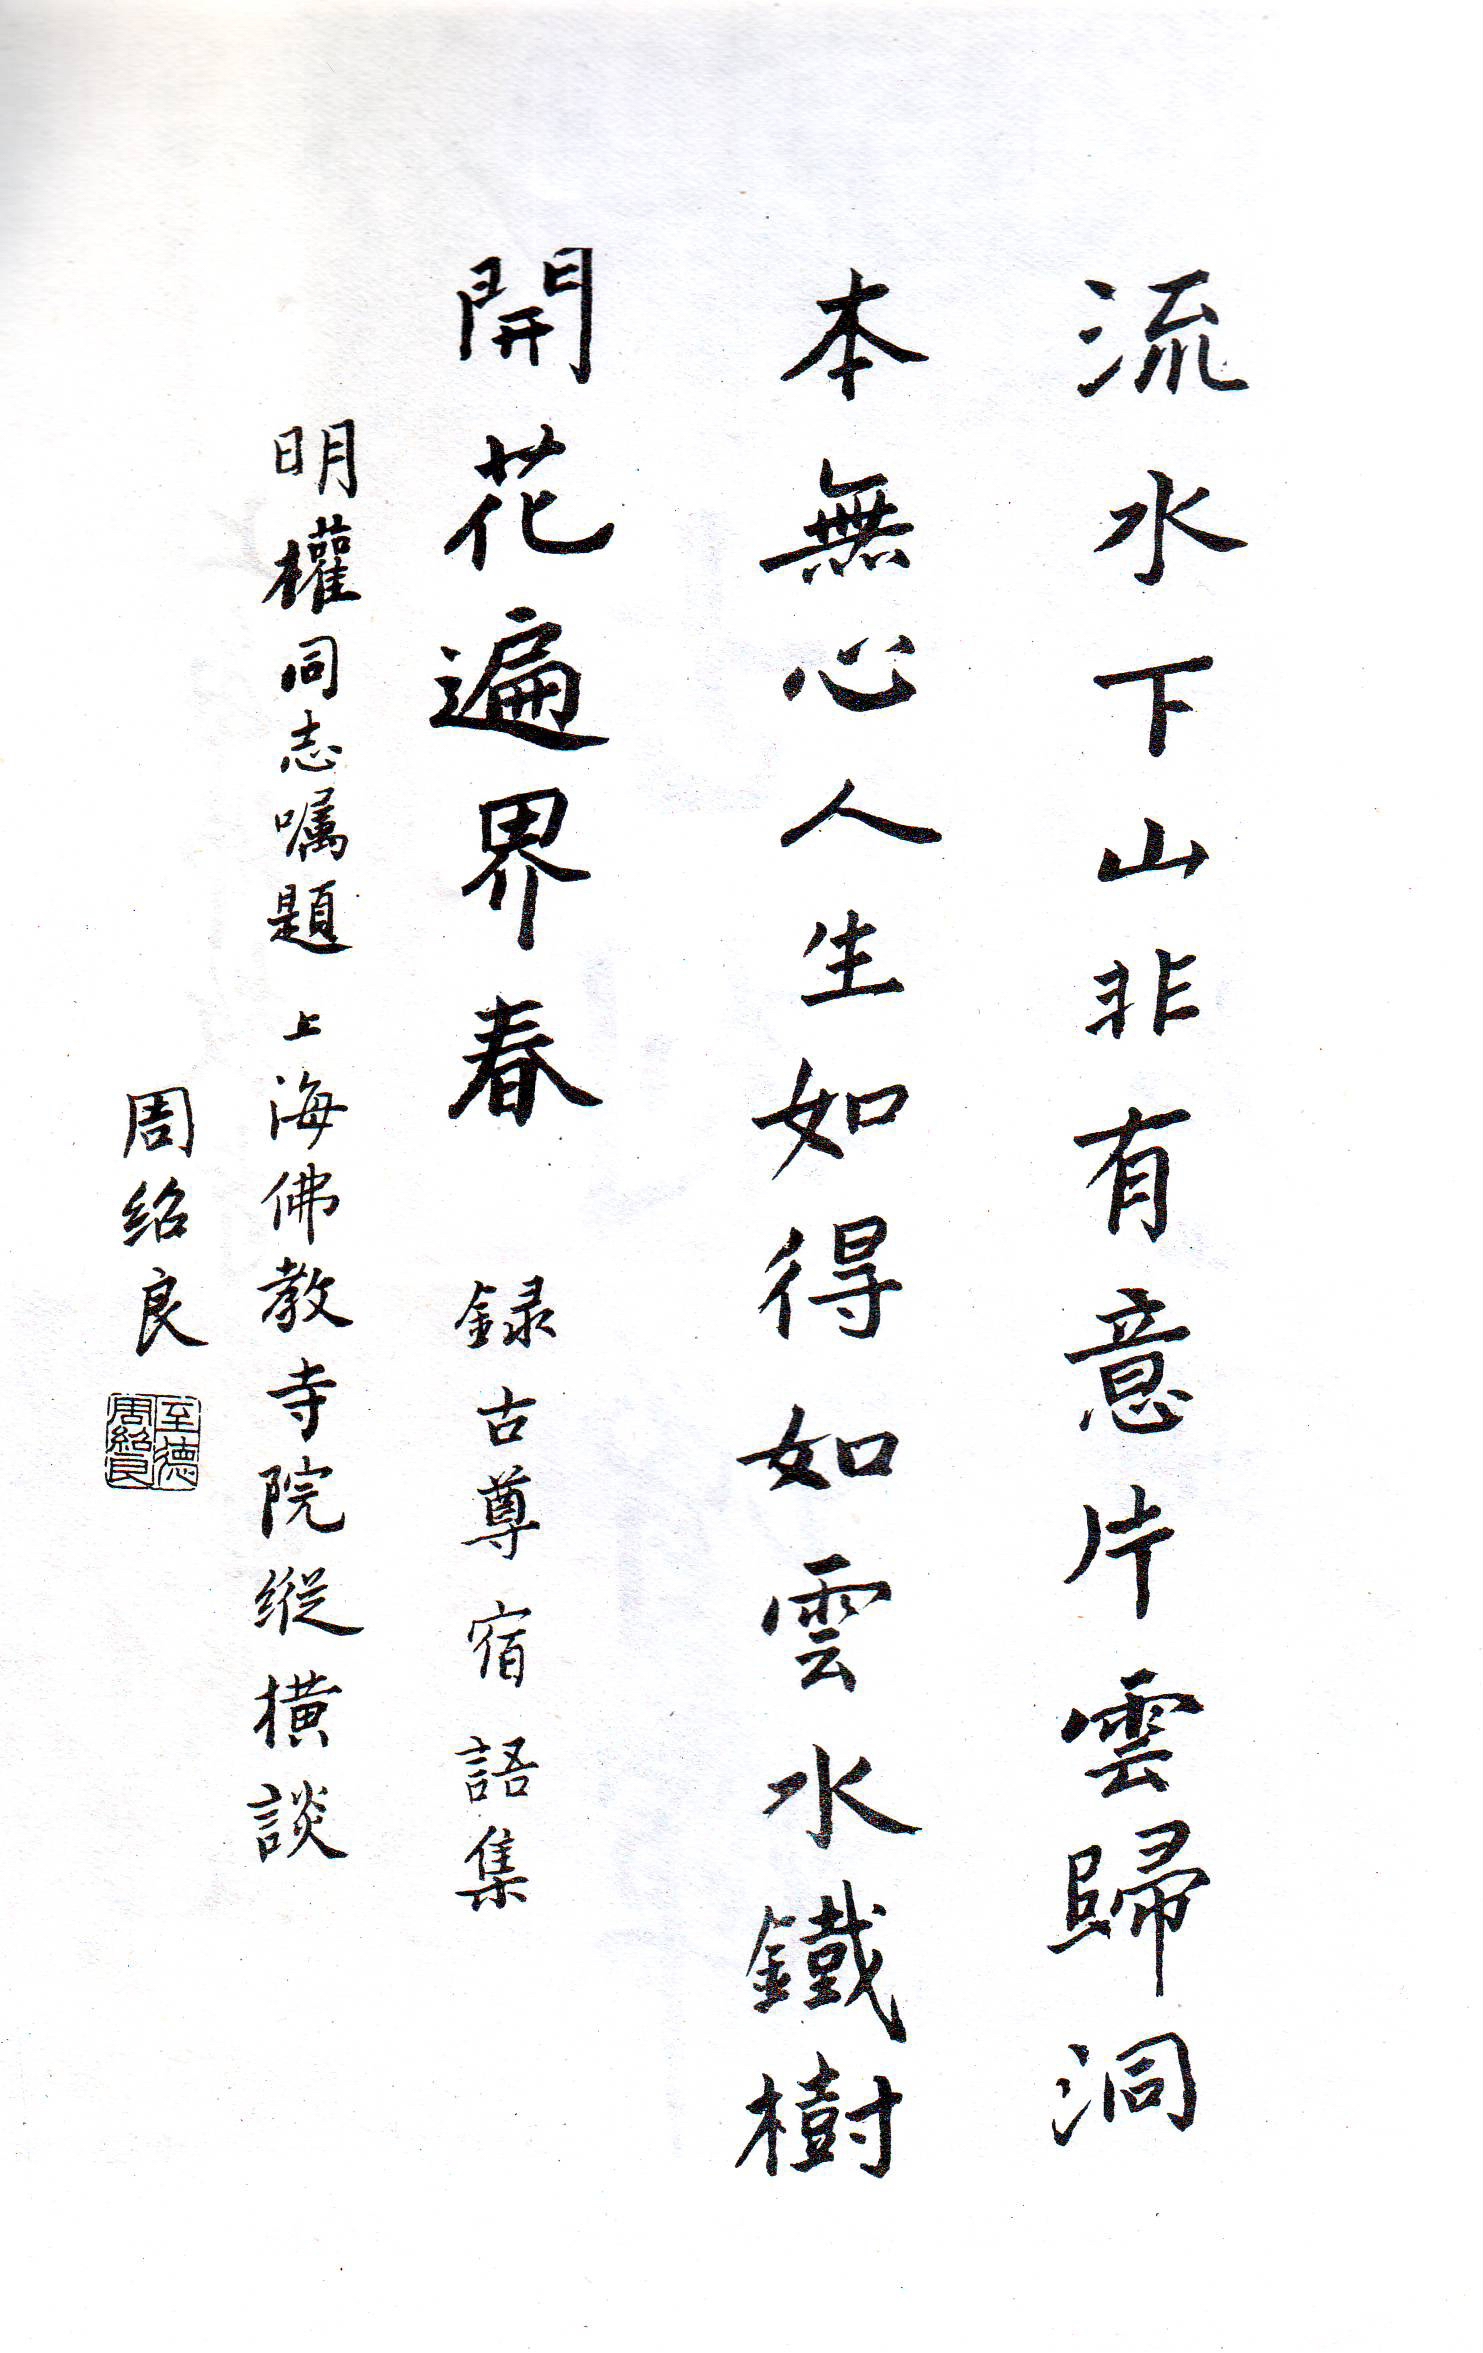 流水下山非有意片雲歸洞
本無心人生如得如雲水鐵樹
開花遍界春 録古尊宿語集
明權同志嘱題 上海佛教寺院縱橫談
周紹良
至德
周紹良